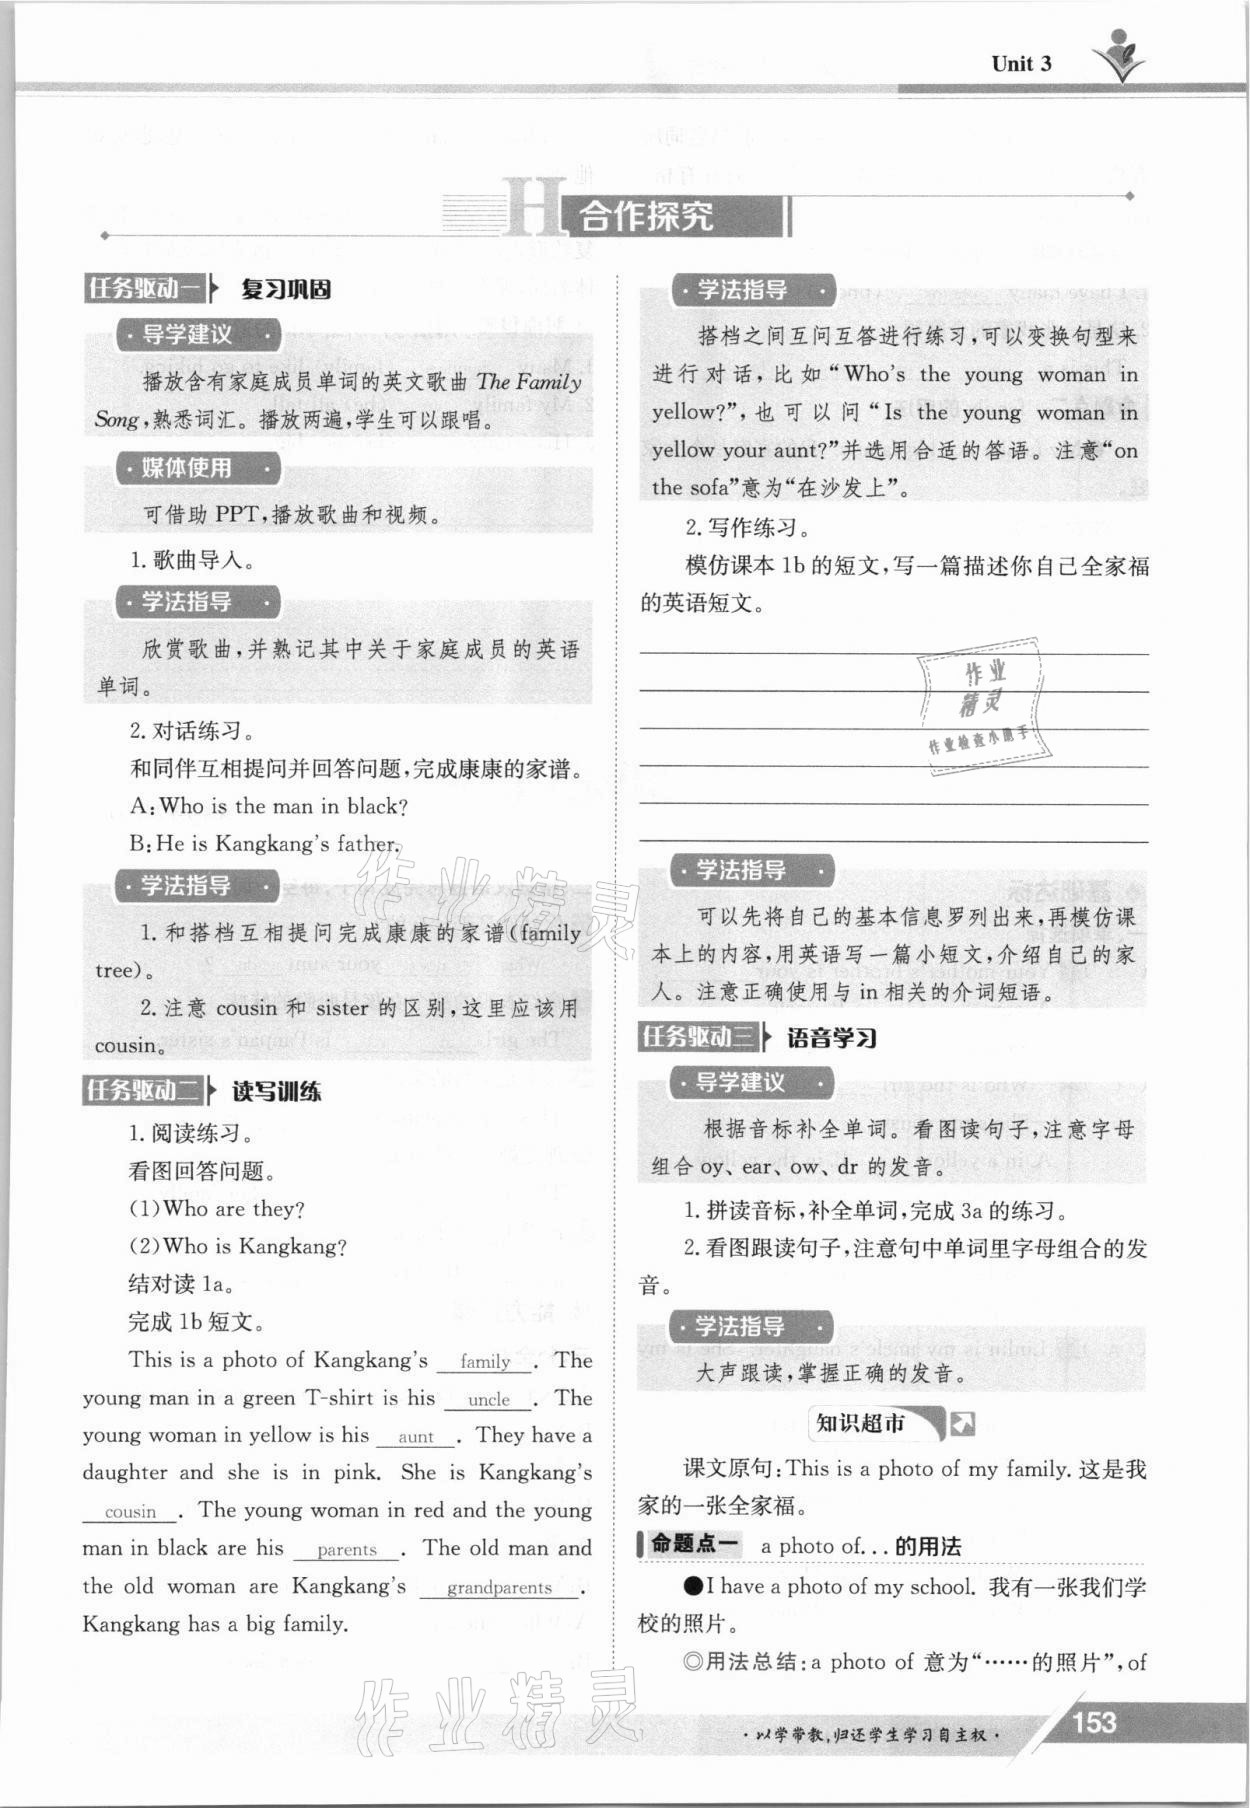 Unit 3
H 合作探究
任务驱动一 复习巩固
·导学建议·
播放含有家庭成员单词的英文歌曲 The Family
Song,熟悉词汇。播放两遍,学生可以跟唱。
·媒体使用·
可借助 PPT,播放歌曲和视频。
1. 歌曲导入。
·学法指导·
欣赏歌曲,并熟记其中关于家庭成员的英语
单词。
2. 对话练习。
和同伴互相提问并回答问题,完成康康的家谱。
A:Who is the man in black?
B:He is Kangkang's father.
·学法指导·
1. 和搭档互相提问完成康康的家谱(family
tree)。
2. 注意 cousin 和 sister 的区别,这里应该用
cousin。
任务驱动二 读写训练
1. 阅读练习。
看图回答问题。
(1)Who are they?
(2)Who is Kangkang?
结对读 1a。
完成 1b 短文。
This is a photo of Kangkang's family . The
young man in a green T-shirt is his uncle . The
young woman in yellow is his aunt . They have a
daughter and she is in pink. She is Kangkang's
cousin . The young woman in red and the young
man in black are his parents . The old man and
the old woman are Kangkang's grandparents .
Kangkang has a big family.
·学法指导·
搭档之间互问互答进行练习,可以变换句型来
进行对话,比如“Who's the young woman in
yellow?”,也可以问“Is the young woman in
yellow your aunt?”并选用合适的答语。注意“on
the sofa”意为“在沙发上”。
2. 写作练习。
模仿课本 1b 的短文,写一篇描述你自己全家福
的英语短文。
作业
精灵
作业检查小助手
·学法指导·
可以先将自己的基本信息罗列出来,再模仿课
本上的内容,用英语写一篇小短文,介绍自己的家
人。注意正确使用与 in 相关的介词短语。
任务驱动三 语音学习
·导学建议·
根据音标补全单词。看图读句子,注意字母
组合 oy、ear、ow、dr 的发音。
1. 拼读音标,补全单词,完成 3a 的练习。
2. 看图跟读句子,注意句中单词里字母组合的发
音。
·学法指导·
大声跟读,掌握正确的发音。
知识超市
课文原句:This is a photo of my family. 这是我
家的一张全家福。
命题点一 a photo of... 的用法
●I have a photo of my school. 我有一张我们学
校的照片。
◎用法总结:a photo of 意为“……的照片”,of
作业精灵
作业精灵
·以学带教,归还学生学习自主权·
153